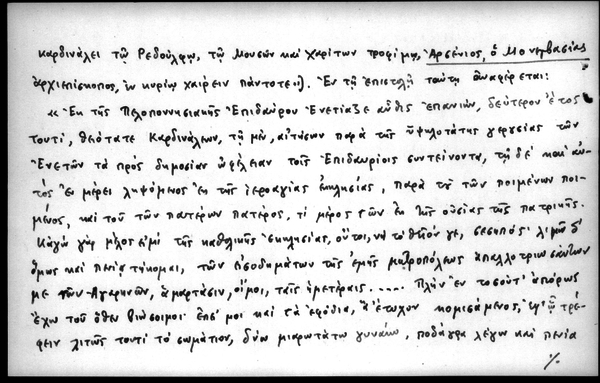 καρδινάλει τῷ Ρεδούλφῳ, τῷ Μουσῶν καὶ Χαρίτων τροφίμῳ, Ἀρσένιος, ὁ Μονεμβασίας
ἀρχιεπίσκοπος, ἐν κυρίῳ χαίρειν πάντοτε»). Ἐν τῇ ἐπιστολῇ ταύτῃ ἀναφέρεται:
« Ἐκ τῆς Πελοποννησιακῆς Ἐπιδαύρου Ἐνετίαζε αὖθις ἐπανιών, δεύτερον ἔτος
τουτί, θειότατε Καρδινάλεων, τῇ μὲν, αἰτήσων παρὰ τῆς ὑψηλοτάτης γερουσίας τῶν
Ἐνετῶν τὰ πρὸς δημοσίαν ὠφέλειαν τοῖς Ἐπιδαυρίοις συντείνοντα, τῇ δὲ καὶ αὐ-
τὸς ἐν μέρει ληψόμενος ἐκ τῆς ἱεροαγίας ἐκκλησίας, παρὰ τοῦ τῶν ποιμένων ποι-
μένος, καὶ τοῦ τῶν πατέρων πατέρος, τί μέρος τῶν ἐκ τῆς οὐσίας τῆς πατρικῆς.
Κἀγὼ γὰρ μέλος εἰμί τῆς καθολικῆς ἐκκλησίας, οὔτοι, νὴ τὸ θεῖόν γε, σεσηπός· λιμῷ δ'
ὅμως καὶ πενίᾳ τήκομαι, τῶν εἰσοδημάτων τῆς ἐμῆς μητροπόλεως ἀπαλλοτριωσάντων
με τῶν Ἀγαρηνῶν, ἁμαρτάσιν, οἴμοι, ταῖς ἡμετέραις. .... Πλὴν ἐν τοσούτ' ἀπόρως
ἔχω τοῦ ὅθεν βιώσοιμι ἐπεί μοι καὶ τὰ ἐφόδια, ἃ ἔτυχον κομισάμενος, ἐφ' ᾧ τρέ-
φειν λιτῶς τουτί τὸ σωμάτιον, δύω μιαρωτάτω γυναίω, ποδάγρα λέγω καὶ πενία
./.